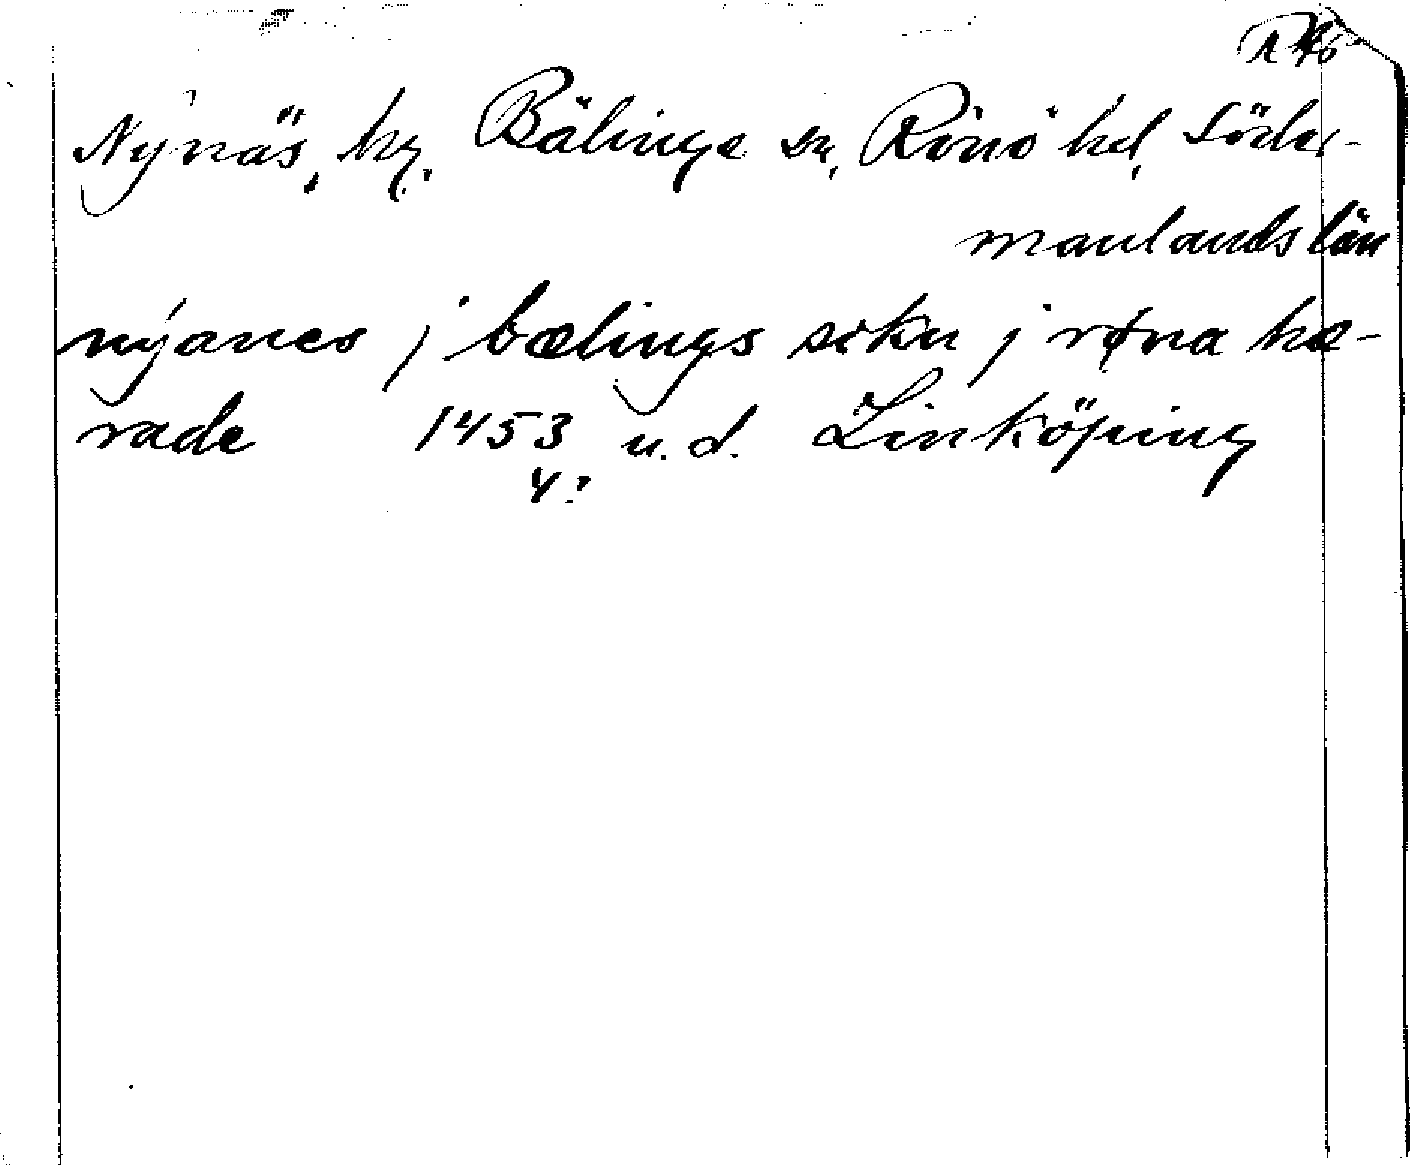 Nynäs, hg. Bälinge sn, Rönö hd, Söder-
manlands län
nyanes j bælings sokn j røna hæ-
rade 1453 u.d. Linköping
4: